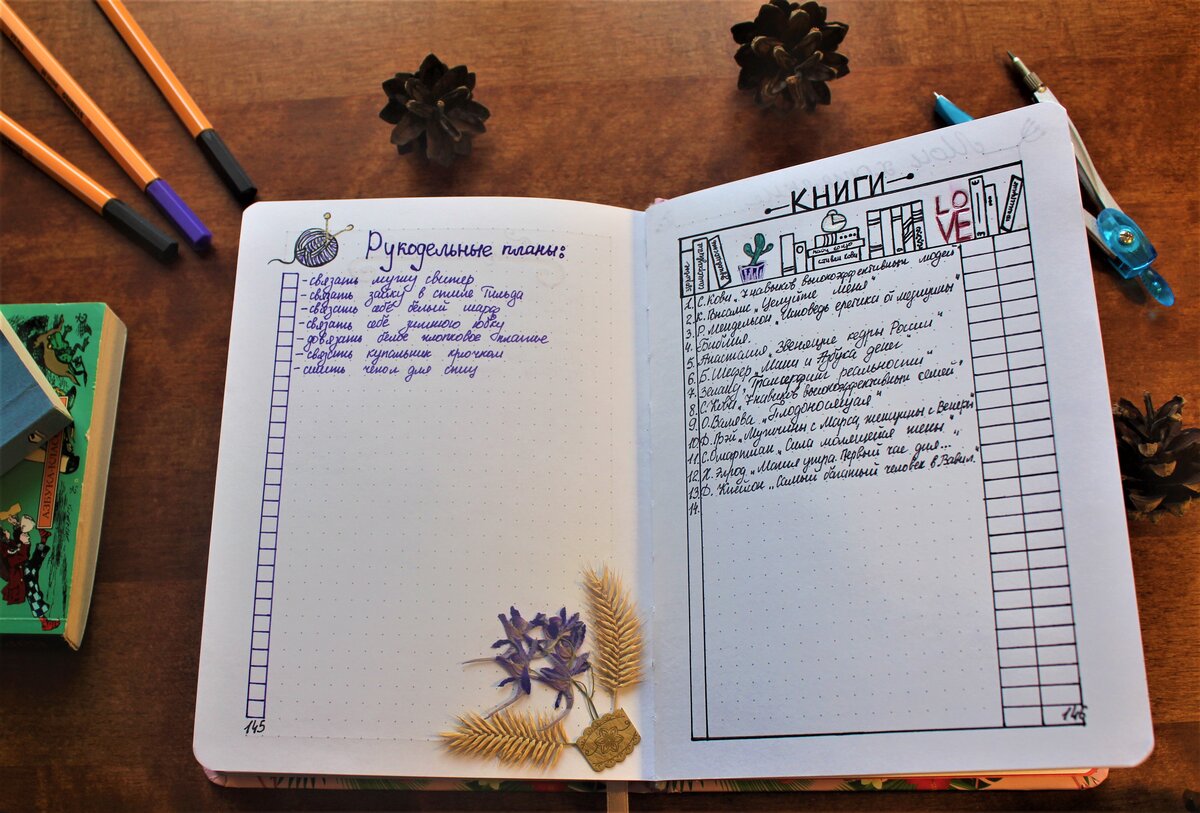 Рукодельные планы:
- связать мужу свитер
- связать зайку в стиле Тильда
- связать себе белый шарф
- связать себе зимнюю юбку
- довязать белое хлопковое платье
- связать купальник крючком
- сшить чехол для спиц
145
КНИГИ
саморазвитие
LO
VE
1. С. Кови „7 навыков высокоэффективных людей"
2. К. „Целуйте меня"
3. Р. Мендельсон „Исповедь еретика от медицины"
4. Библия.
5. Анастасия „Звенящие кедры России"
6. Б. Шефер „Мани и Азбука денег"
7. Зеланд „Трансерфинг реальности"
8. С. Кови „7 навыков высокоэффективных семей"
9. О. Валяева „Плодоносящая"
10. Д. Грэй „Мужчины с Марса, женщины с Венеры"
11. С. Омартиан „Сила молящейся жены"
12. Х. Элрод „Магия утра. Первый час дня..."
13. Д. Клейсон „Самый богатый человек в Вавил."
14.
146
АЗБУКА-КЛАС